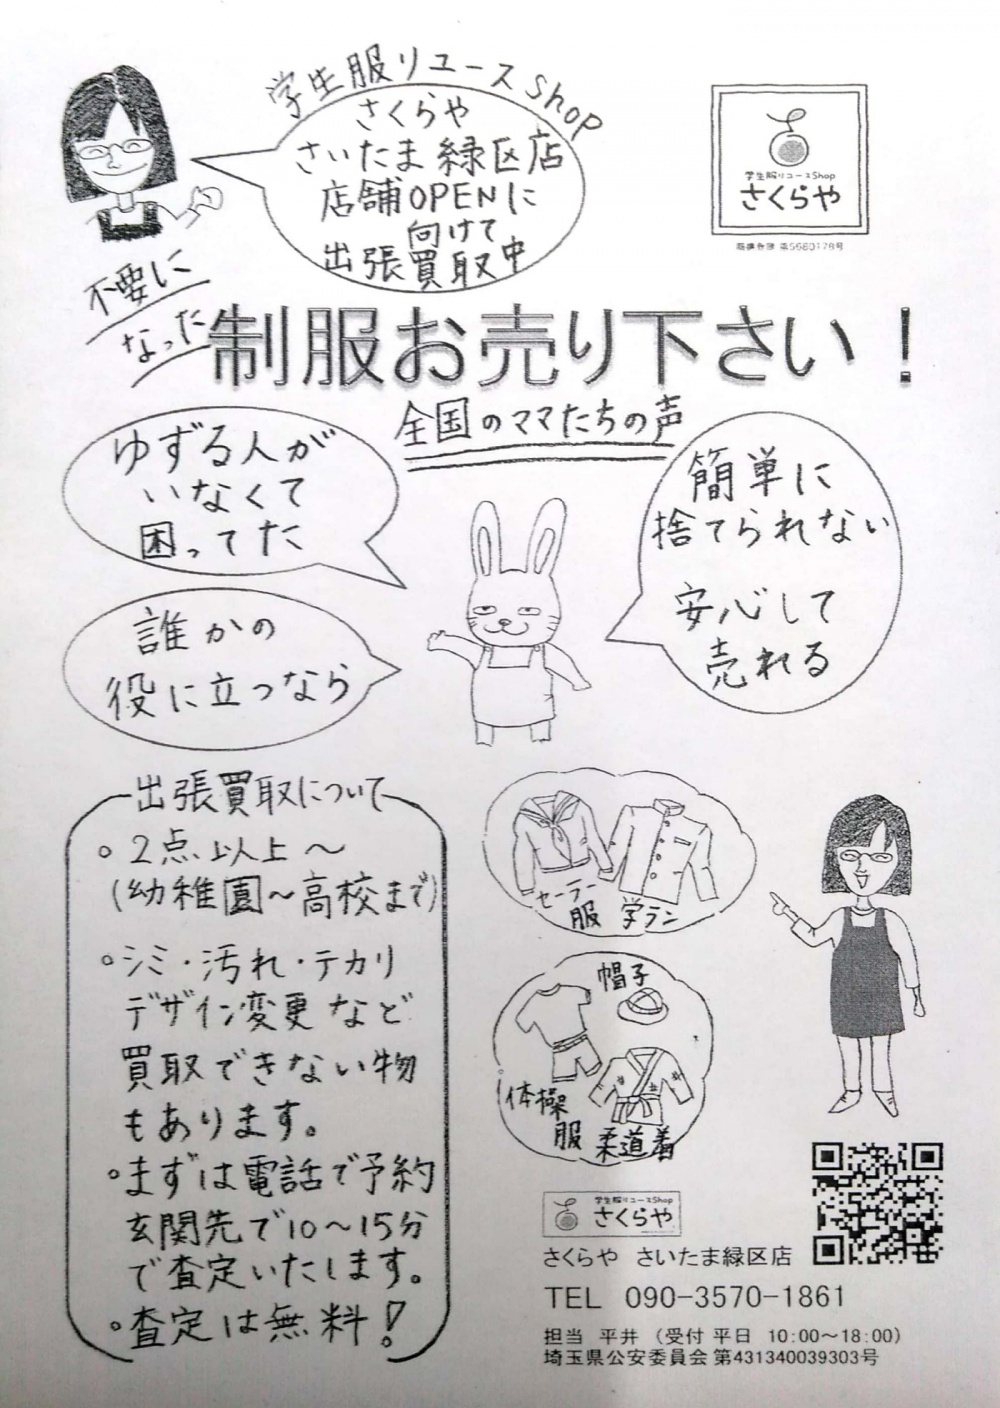 学生服リユースShop
さくらや
さいたま緑区店
店舗OPENに
向けて
出張買取中
学生服リユースShop
さくらや
商標登録 第5680178号
不要に
なった
制服お売り下さい!
全国のママたちの声
ゆずる人が
いなくて
困ってた
簡単に
捨てられない
安心して
売れる
誰かの
役に立つなら
出張買取について
・2点以上~
(幼稚園~高校まで)
・シミ・汚れ・テカリ
デザイン変更など
買取できない物
もあります。
・まずは電話で予約
玄関先で10~15分
で査定いたします。
・査定は無料!
セーラー
服
学ラン
帽子
体操
服
柔道着
学生服リユースShop
さくらや
さくらや さいたま緑区店
TEL 090-3570-1861
担当 平井 (受付 平日 10:00~18:00)
埼玉県公安委員会 第431340039303号